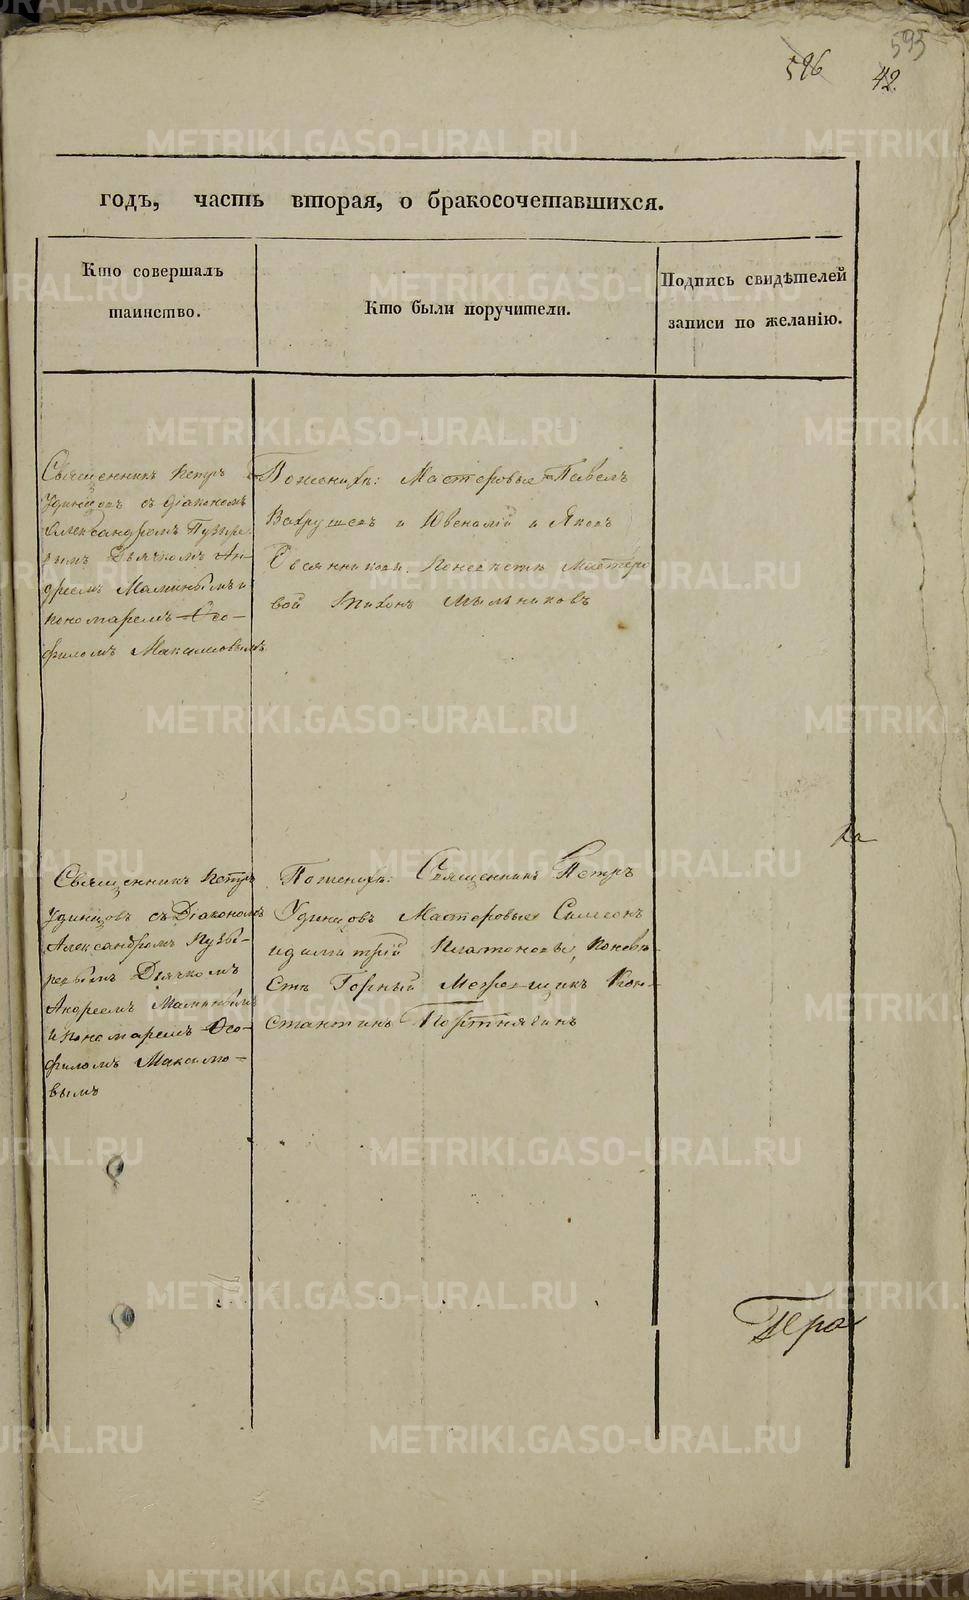 595
596
42.
годъ, часть вторая, о бракосочетавшихся.
Кто совершалъ
таинство.
Кто были поручители.
Подпись свидѣтелей
записи по желанію.
Священникъ Петръ
Удинцовъ съ Діакономъ
Александромъ Пузыре-
вымъ Дьячкомъ Ан-
дреемъ Мамин
пономаремъ Ѳео-
филомъ Максимовымъ
По женихѣ: Мастеровые Павелъ
Вахрушевъ и Ювеналій и Яковъ
Овсянниковы. По невѣстѣ Мастеро
вой Тихонъ Мыльниковъ
Священникъ Петръ
Удинцовъ съ Діакономъ
Александромъ Пузы-
ревымъ Дьячкомъ
Андреемъ Маминымъ
и пономаремъ Ѳео-
филомъ Максимо-
вымъ
По женихѣ: Священникъ Петръ
Удинцовъ Мастеровые Симеонъ
и Димитрій Платоновы, по невѣ-
стѣ Горный Межевщикъ Кон-
стантинъ Портнягинъ
Про
METRIKI.GASO-URAL.RU